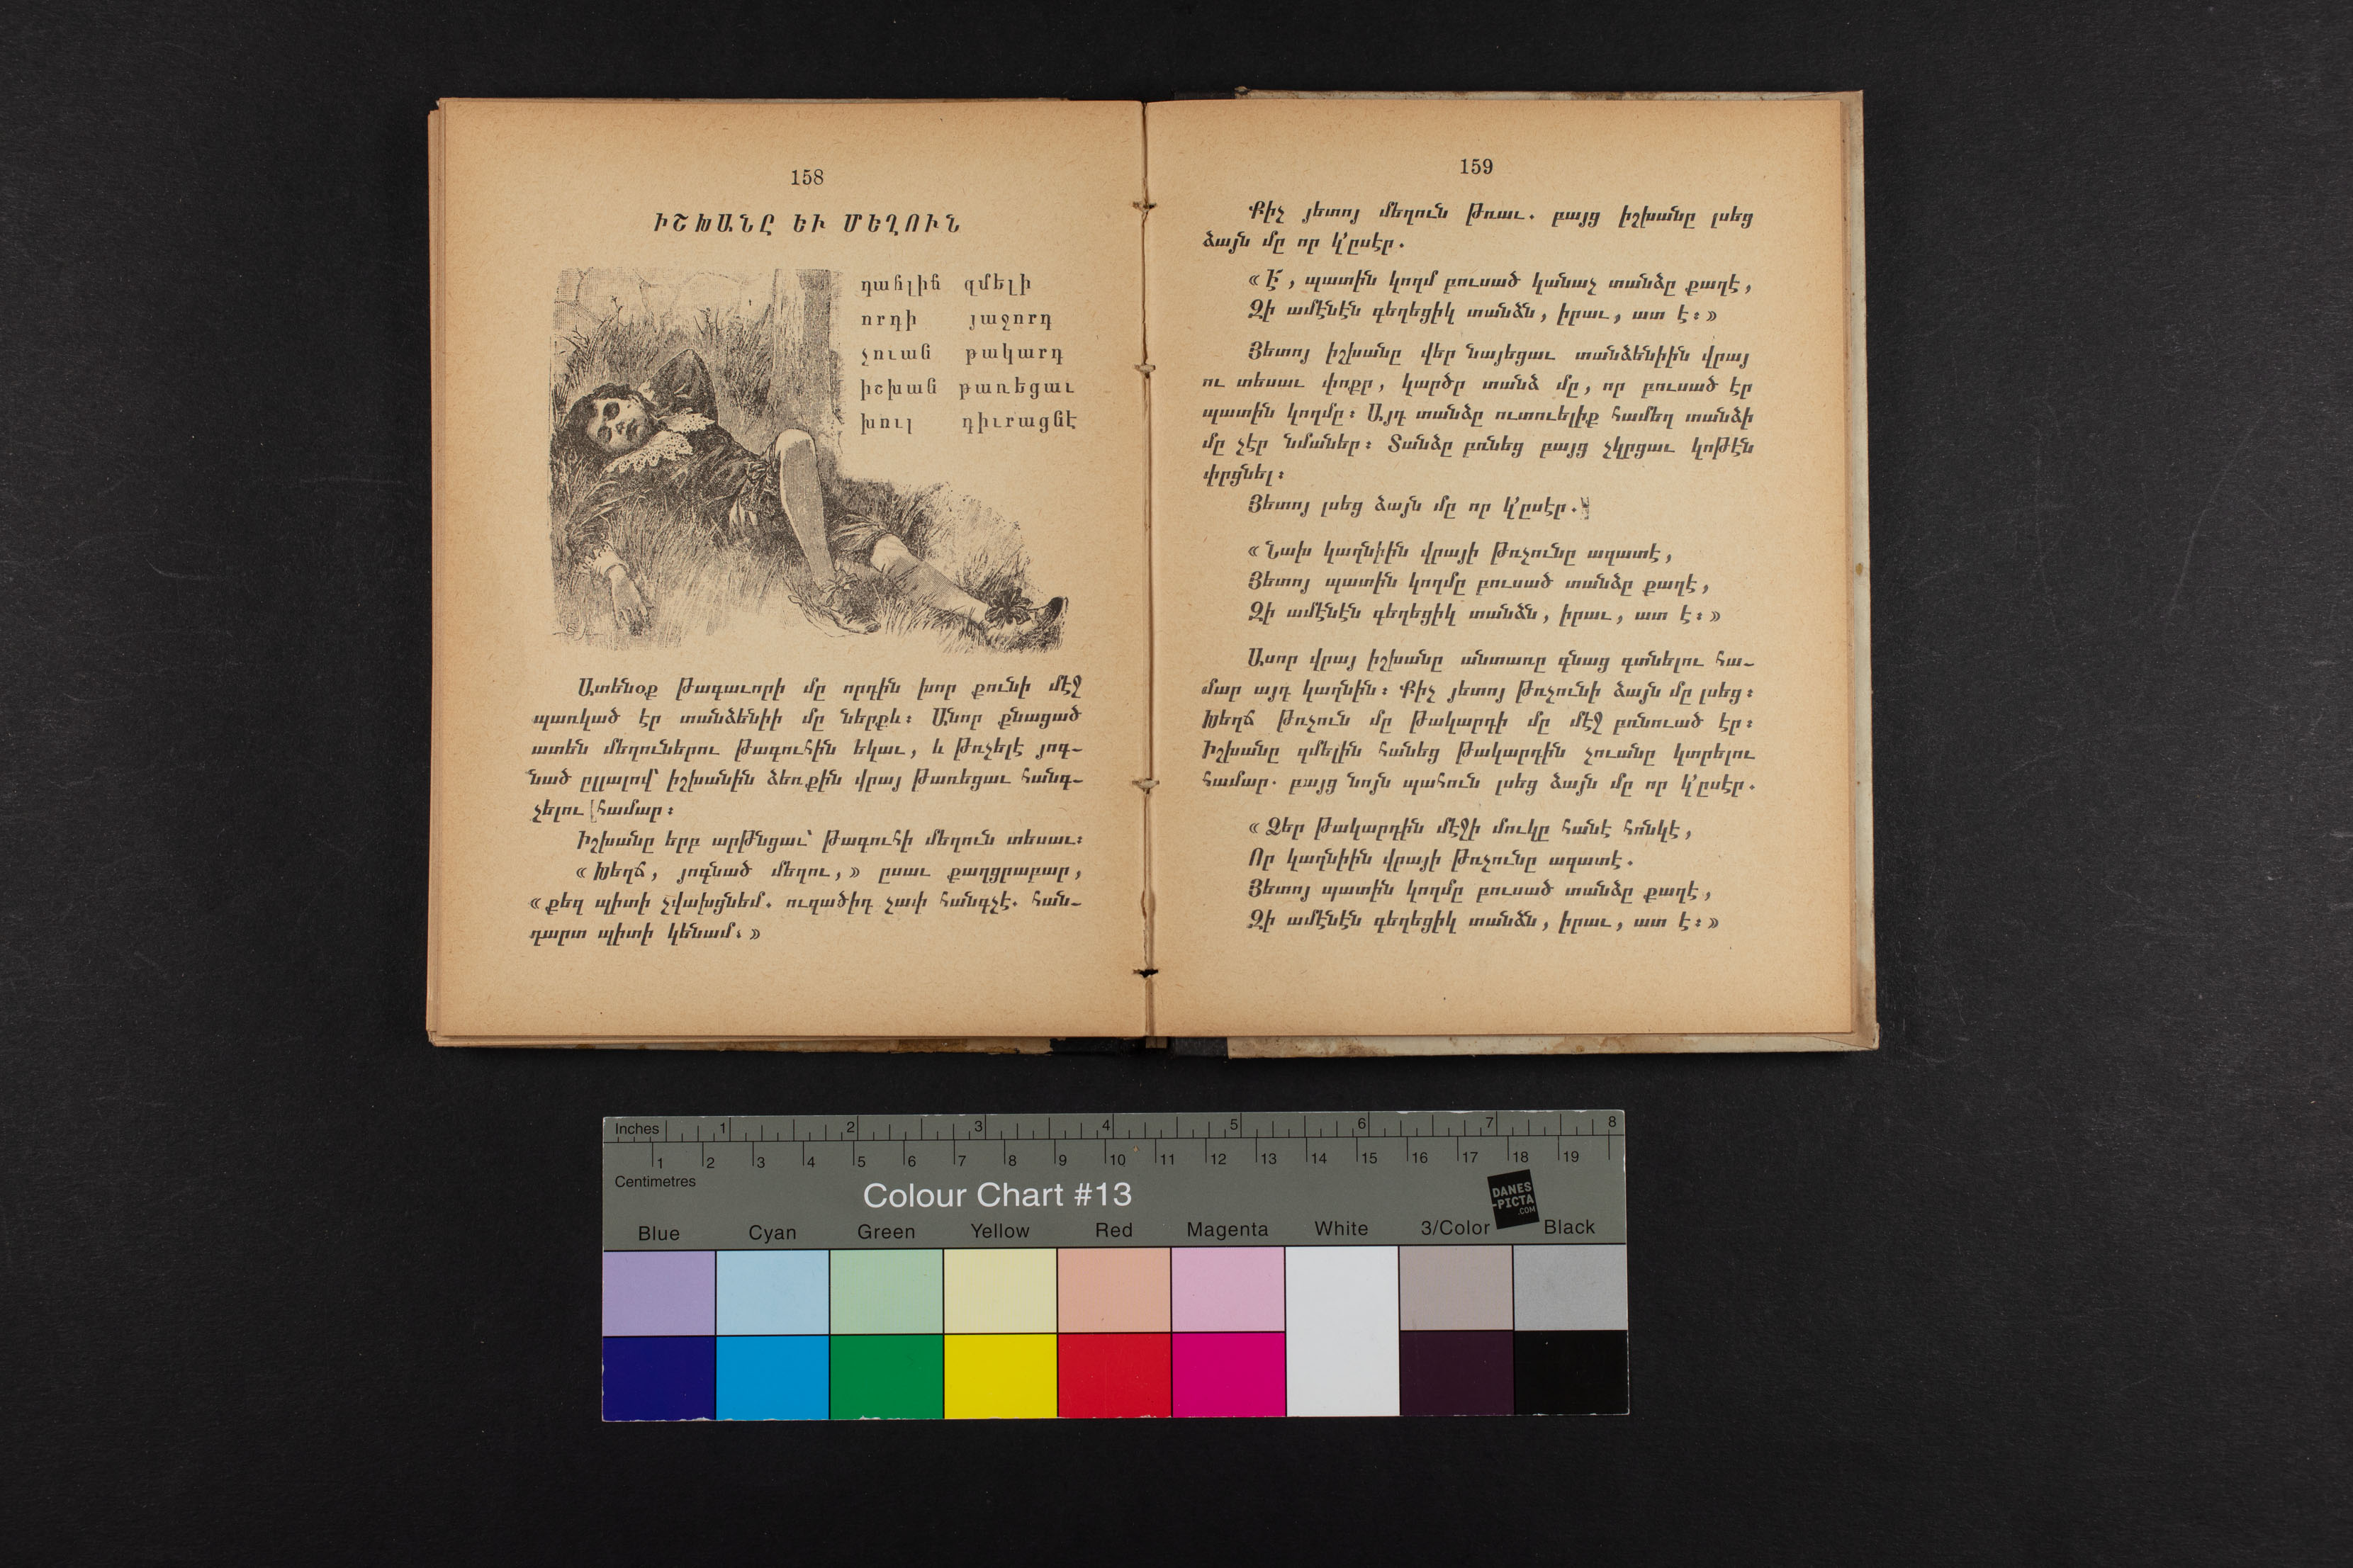 158
ԻՇԽԱՆԸ ԵՒ ՄԵՂՈՒՆ
դահլիճ զմելի
որդի յաջորդ
չուան թակարդ
իշխան թառեցաւ
խուլ դիւրացնէ
Ատենօք թագաւորի մը որդին խոր քունի մէջ
պառկած էր տանձենիի մը ներքև։ Անոր քնացած
ատեն մեղուներու թագուհին եկաւ, և թռչելէ յոգ-
նած ըլլալով՝ իշխանին ձեռքին վրայ թառեցաւ հանգ-
չելու համար։
Իշխանը երբ արթնցաւ՝ թագուհի մեղուն տեսաւ։
«Խեղճ, յոգնած մեղու,» ըսաւ քաղցրաբար,
«քեզ պիտի չվախցնեմ. ուզածիդ չափ հանգչէ. հան-
դարտ պիտի կենամ։»
159
Քիչ յետոյ մեղուն թռաւ. բայց իշխանը լսեց
ձայն մը որ կ՚ըսէր.
«Է՜, պատին կողմ բուսած կանաչ տանձը քաղէ,
Զի ամէնէն գեղեցիկ տանձն, իրաւ, ատ է։»
Յետոյ իշխանը վեր նայեցաւ տանձենիին վրայ
ու տեսաւ փոքր, կարծր տանձ մը, որ բուսած էր
պատին կողմը։ Այդ տանձը ուտուելիք համեղ տանձի
մը չէր նմաներ։ Տանձը բռնեց բայց չկրցաւ կոթէն
փրցնել։
Յետոյ լսեց ձայն մը որ կ՚ըսէր.
«Նախ կաղնիին վրայի թռչունը ազատէ,
Յետոյ պատին կողմը բուսած տանձը քաղէ,
Զի ամէնէն գեղեցիկ տանձն, իրաւ, ատ է։»
Ասոր վրայ իշխանը անտառը գնաց գտնելու հա-
մար այդ կաղնին։ Քիչ յետոյ թռչունի ձայն մը լսեց։
Խեղճ թռչուն մը թակարդի մը մէջ բռնուած էր։
Իշխանը զմելին հանեց թակարդին չուանը կտրելու
համար. բայց նոյն պահուն լսեց ձայն մը որ կ՚ըսէր.
«Ձեր թակարդին մէջի մուկը հանէ հոնկէ,
Որ կաղնիին վրայի թռչունը ազատէ.
Յետոյ պատին կողմը բուսած տանձը քաղէ,
Զի ամէնէն գեղեցիկ տանձն, իրաւ, ատ է։»
Inches 1 2 3 4 5 6 7 8
1 2 3 4 5 6 7 8 9 10 11 12 13 14 15 16 17 18 19
Centimetres
Colour Chart #13
DANES
-PICTA
.COM
Blue Cyan Green Yellow Red Magenta White 3/Color Black